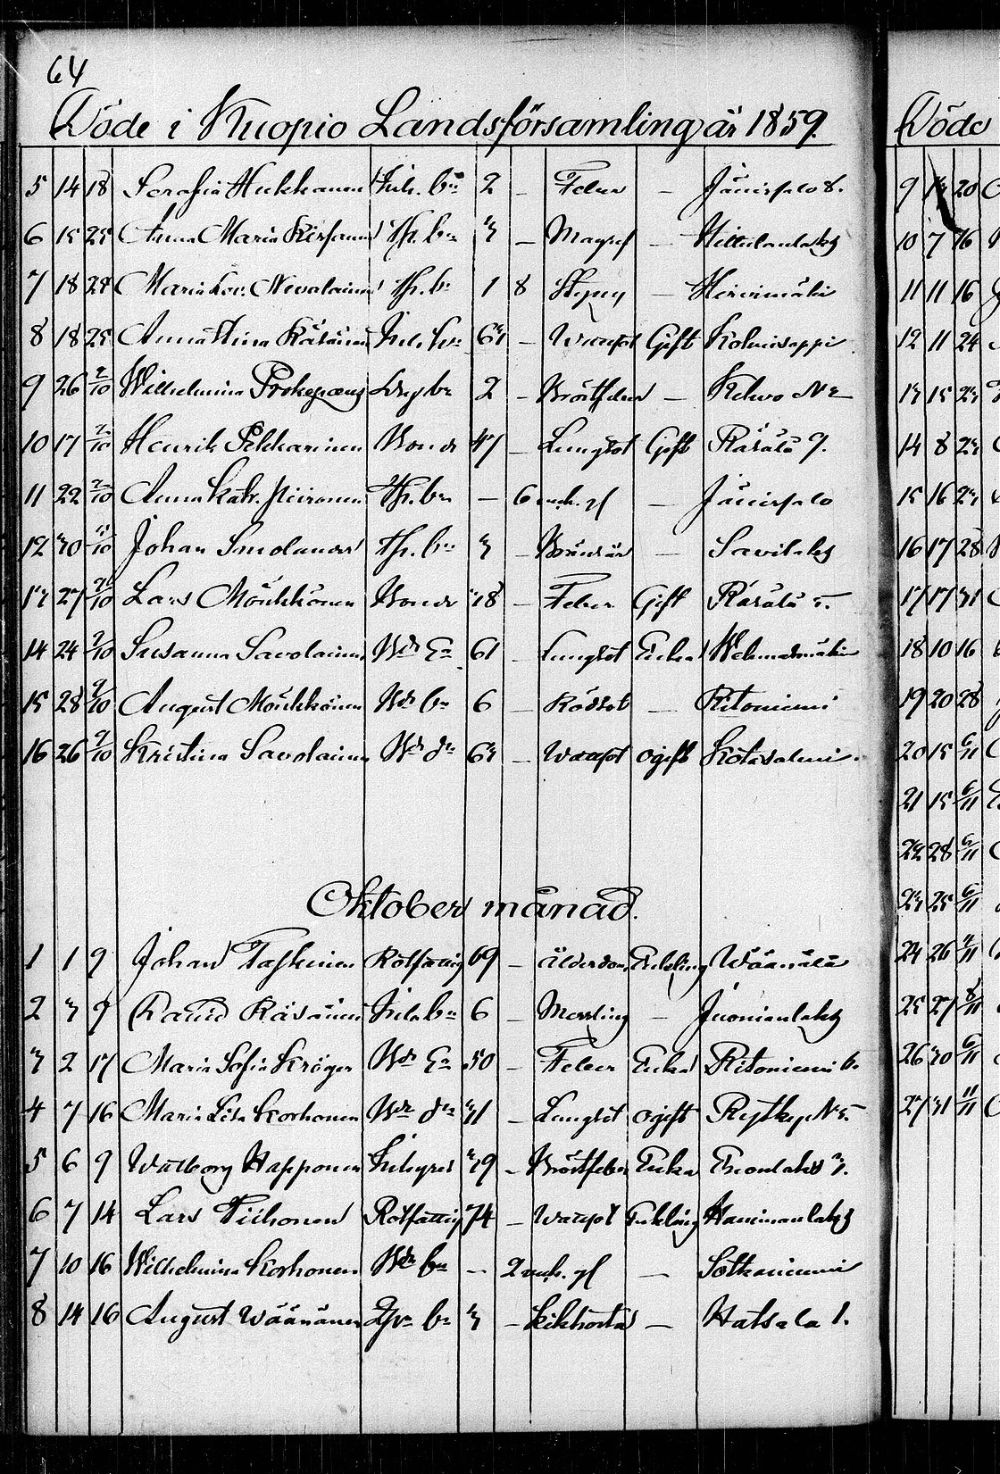 64
Döde i Kuopio Landsförsamling år 1859.
5 14 18 Serafia Hukkanen Inh. bn 2 - Feber - Jännevalo 8.
6 15 25 Anna Maria Tp. bn 3 - Magref -
7 18 28 Maria Lov. Nevalainen Tp. bn 1 8 - Hirvimäki
8 18 25 Anna Stina Räsänen Inh. 63 - Wattsot Gift Kolmisoppi
9 26 2/10 Wilhelmina bn 2 - Bröstfeber - Kelwo № 2
10 17 2/10 Henrik Pekkarinen Bonde 47 - Lungsot Gift Räsälä 9.
11 22 2/10 Anna Katr. Piironen Tp. bn - 6 veck. gl - Jännevalo
12 30 /10 Johan Smolander Tp. bn 3 - - Savilaks
13 27 /10 Lars Mönkkönen Bonde 38 - Feber Gift Räsälä 5.
14 24 /10 Susanna Savolainen 61 - Lungsot Enka Wehmasmäki
15 28 /10 August Mönkkönen bn 6 - Rödsot - Ritoniemi
16 26 /10 Kristina Savolainen 63 - Wattsot ogift Kotasalmi.
Oktober månad.
1 1 9 Johan Taskinen Rotfattig 69 - Ålderdom Enkling Wäänälä
2 3 9 Räsänen Inh. bn 6 - Messling - Juonionlaks
3 2 17 Maria Sofia Kröger 50 - Feber Enka Ritoniemi 6.
4 7 16 Maria Lisa Korhonen 31 - Lungsot ogift Rytky № 5.
5 6 9 Walborg Happonen Inhyses 39 - Bröstfeber Enka 3.
6 7 14 Lars Tiihonen Rotfattig 74 - Wattsot Enkling Haminanlaks
7 10 16 Wilhelmina Korhonen bn - 2 veck. gl - Sotkaniemi
8 14 16 August Wäänänen bn 3 - Kikhosta - Hatsala 1.
Döde
9 20
10 7 16
11 11 16
12 11 24
13 15 23
14 8 23
15 16 23
16 17 28
17 17 31
18 10 16
19 20 28
20 15 6/11
21 15 6/11
22 28 6/11
23 25 6/11
24 26 /11
25 27 /11
26 30 6/11
27 31 /11